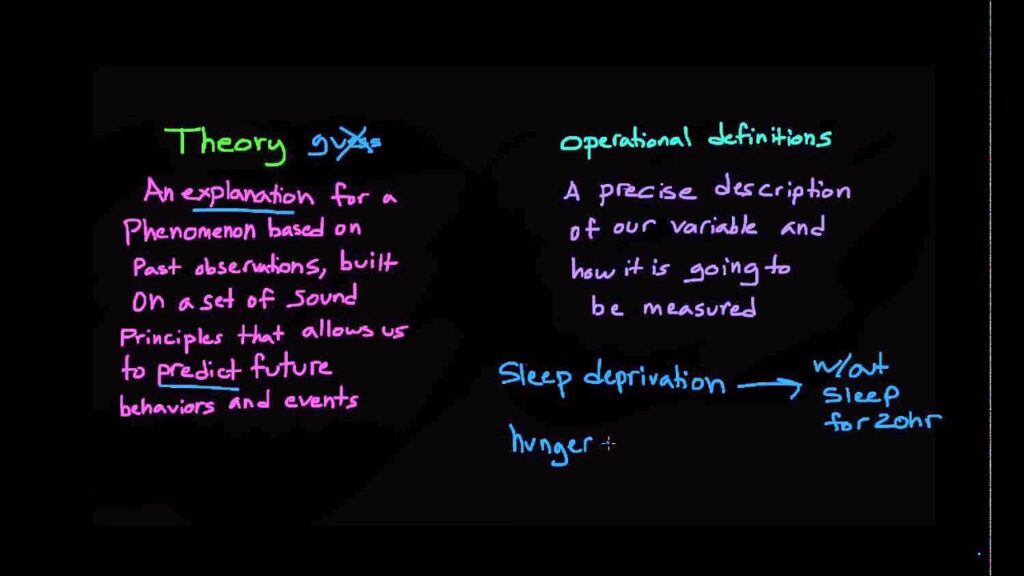 Theory guess
An explanation for a
Phenomenon based on
Past observations, built
on a set of sound
Principles that allows us
to predict future
behaviors and events
operational definitions
A precise description
of our variable and
how it is going to
be measured
Sleep deprivation → w/out
sleep
for 20hr
hunger